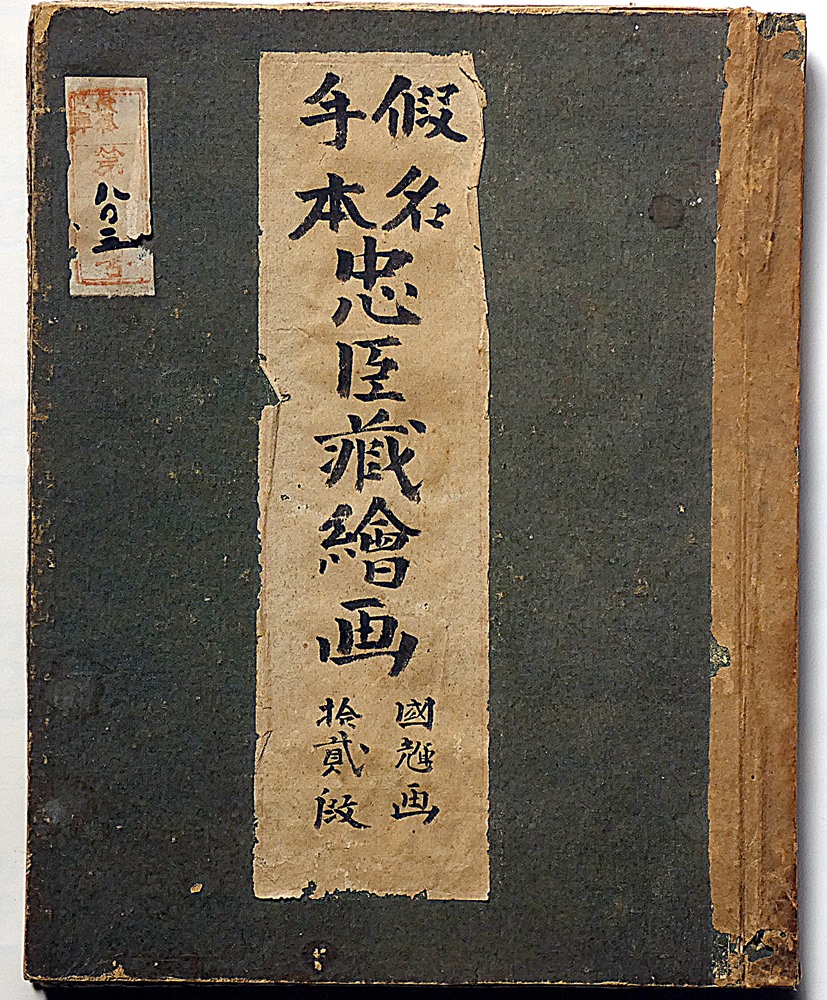 假名
手本
忠臣藏繪画
國輝画
拾貳段
第
八〇三